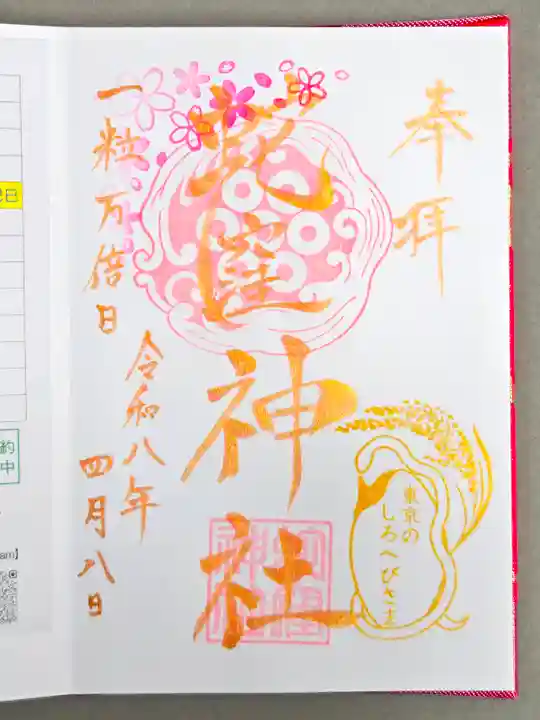 奉拝
蛇窪神社
東京の
しろへびさま
令和八年
四月八日
一粒万倍日
日
約
中
am】